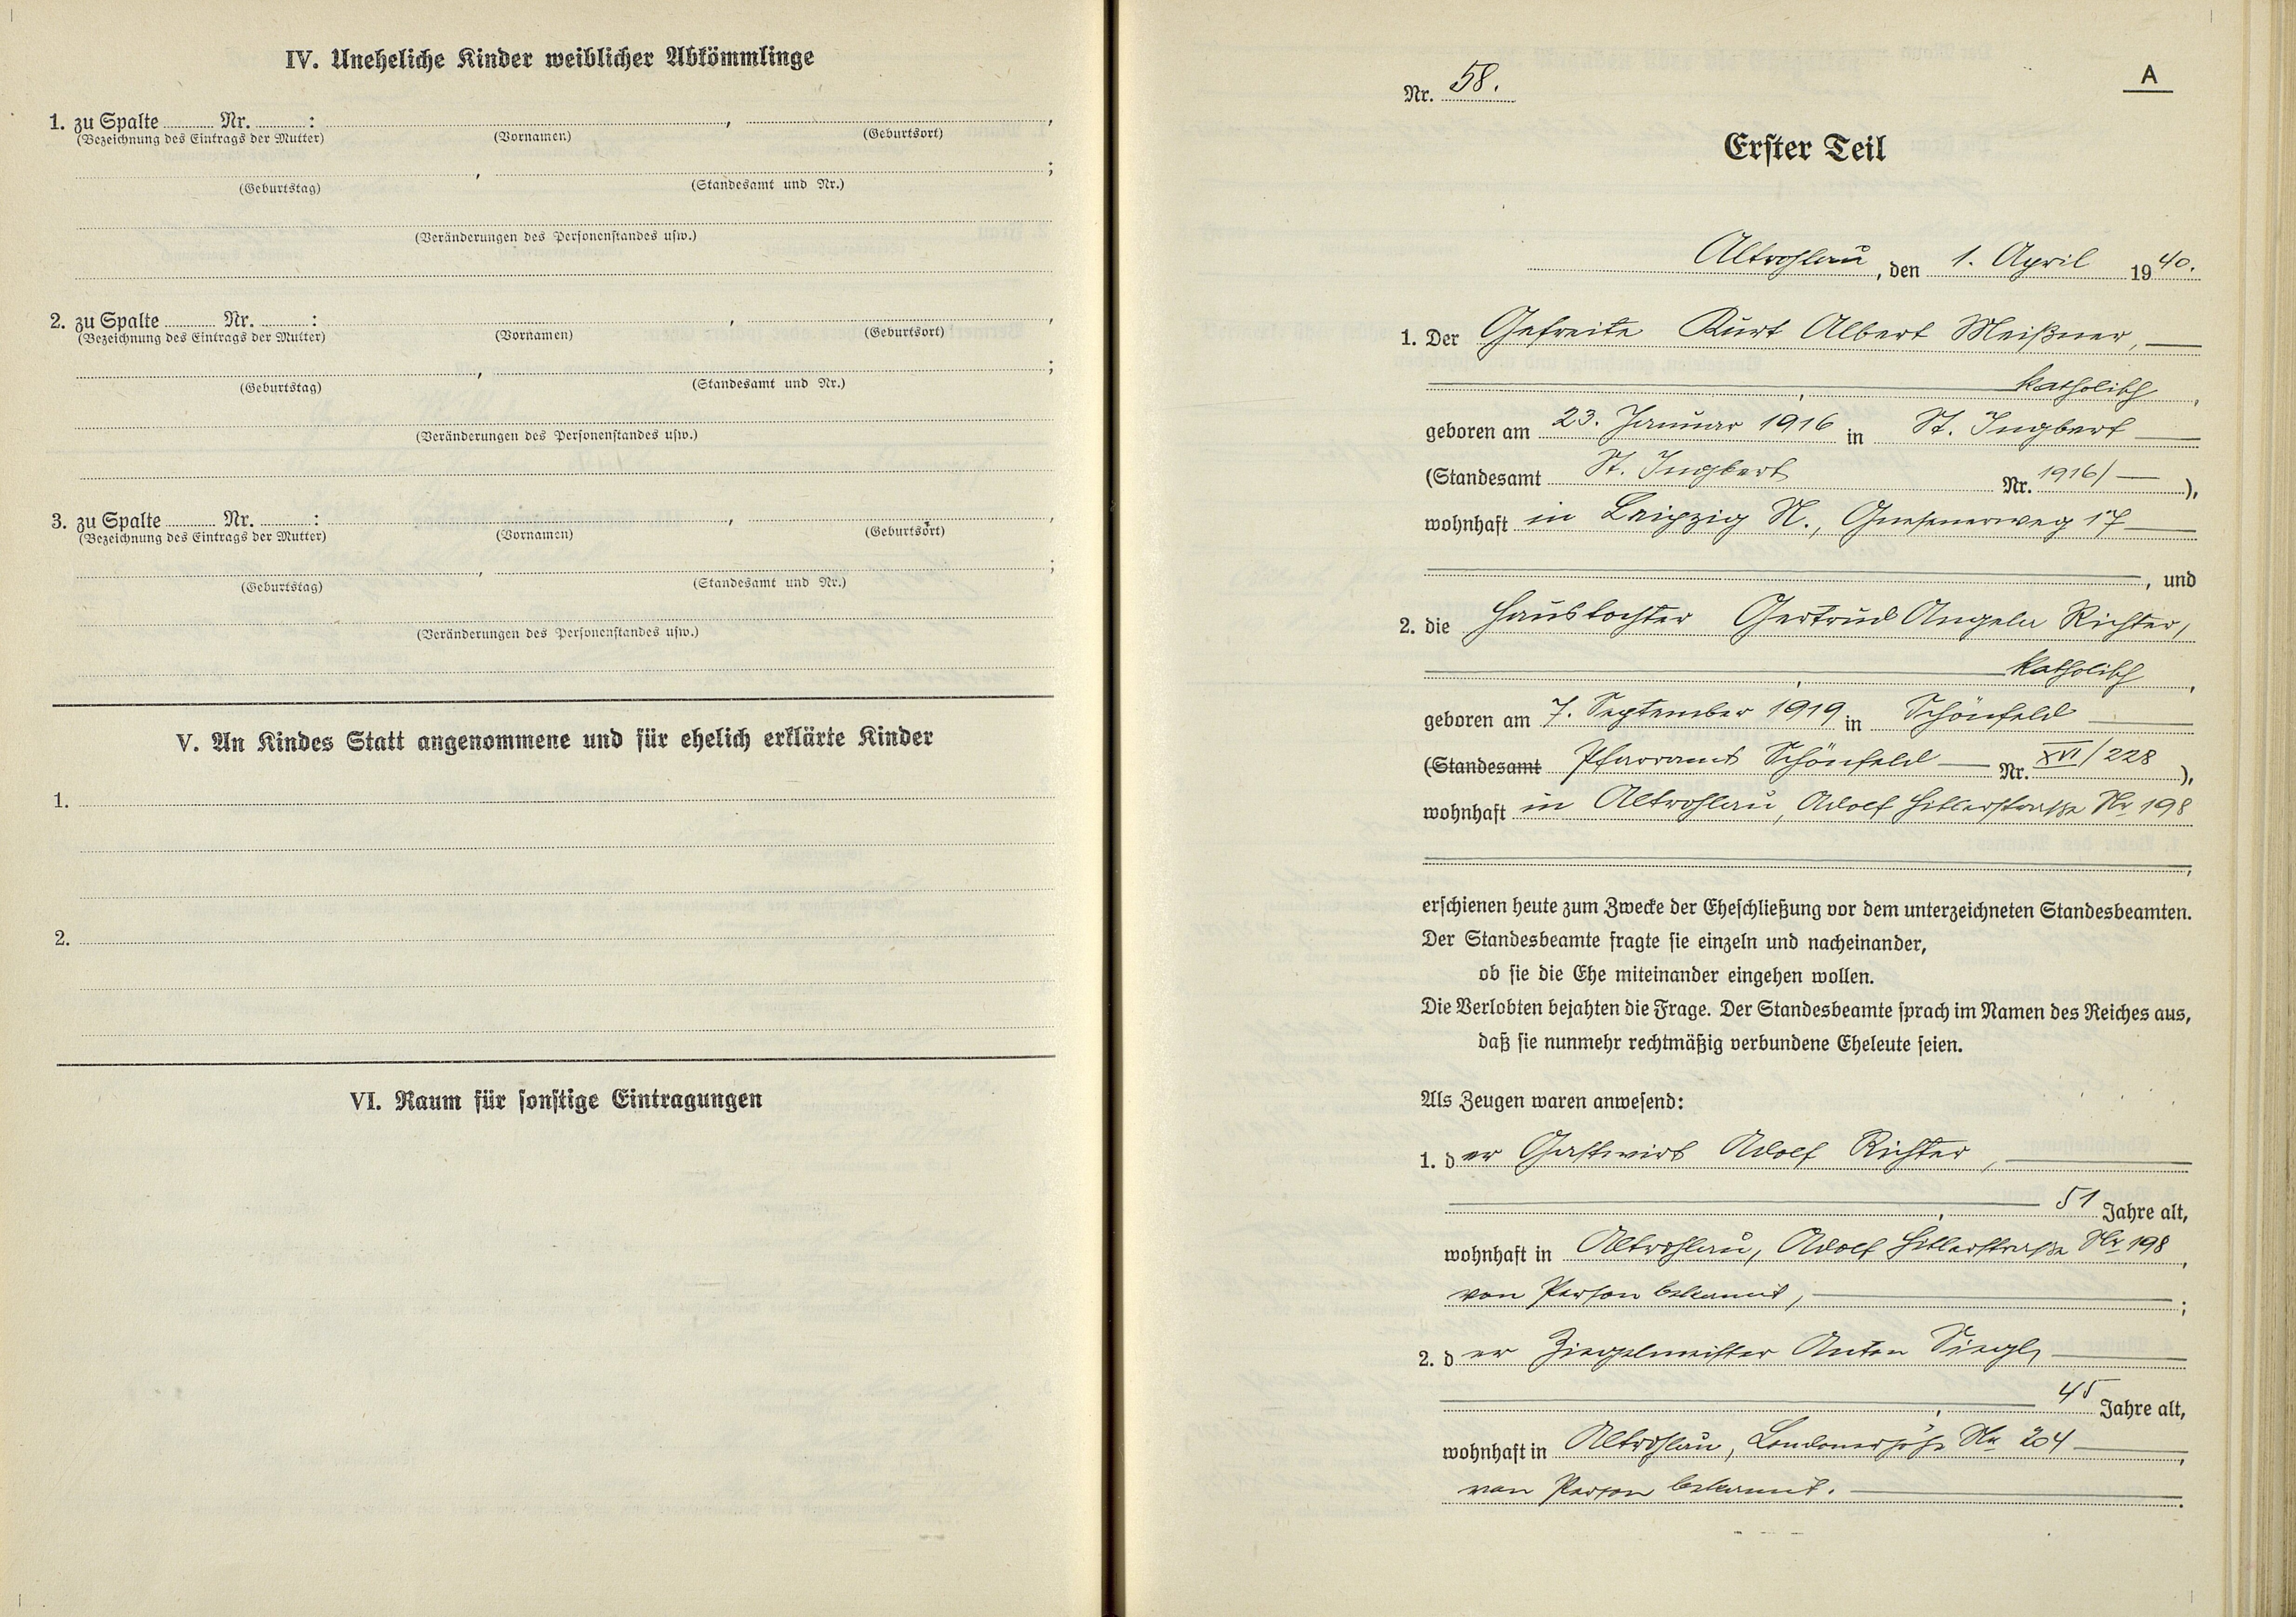 IV. Uneheliche Kinder weiblicher Abkömmlinge
1. zu Spalte ........ Nr. ........ : ........ , ........ ,
(Bezeichnung des Eintrags der Mutter) (Vornamen) (Geburtsort)
........ , ........ ;
(Geburtstag) (Standesamt und Nr.)
(Veränderungen des Personenstandes usw.)
2. zu Spalte ........ Nr. ........ : ........ , ........ ,
(Bezeichnung des Eintrags der Mutter) (Vornamen) (Geburtsort)
........ , ........ ;
(Geburtstag) (Standesamt und Nr.)
(Veränderungen des Personenstandes usw.)
3. zu Spalte ........ Nr. ........ : ........ , ........ ,
(Bezeichnung des Eintrags der Mutter) (Vornamen) (Geburtsort)
........ , ........ ;
(Geburtstag) (Standesamt und Nr.)
(Veränderungen des Personenstandes usw.)
V. An Kindes Statt angenommene und für ehelich erklärte Kinder
1.
2.
VI. Raum für sonstige Eintragungen
A
Nr. 58.
Erster Teil
Altrohlau, den 1. April 1940.
1. Der Gefreite Kurt Albert Meißner,
katholisch,
geboren am 23. Januar 1916 in St. Ingbert
(Standesamt St. Ingbert Nr. 1916/—),
wohnhaft in Leipzig N., Gnesenerweg 17
, und
2. die Haustochter Gertrud Angela Richter,
katholisch,
geboren am 7. September 1919 in Schönfeld
(Standesamt Pfarramt Schönfeld — Nr. XVI/228),
wohnhaft in Altrohlau, Adolf Hitlerstraße Nr 198
erschienen heute zum Zwecke der Eheschließung vor dem unterzeichneten Standesbeamten.
Der Standesbeamte fragte sie einzeln und nacheinander,
ob sie die Ehe miteinander eingehen wollen.
Die Verlobten bejahten die Frage. Der Standesbeamte sprach im Namen des Reiches aus,
daß sie nunmehr rechtmäßig verbundene Eheleute seien.
Als Zeugen waren anwesend:
1. der Gastwirt Adolf Richter,
51 Jahre alt,
wohnhaft in Altrohlau, Adolf Hitlerstraße Nr 198,
von Person bekannt, ;
2. der Ziegelmeister Anton Siegl
45 Jahre alt,
wohnhaft in Altrohlau, Nr 204,
von Person bekannt.